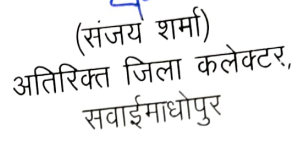 (संजय शर्मा)
अतिरिक्त जिला कलेक्टर,
सवाईमाधोपुर